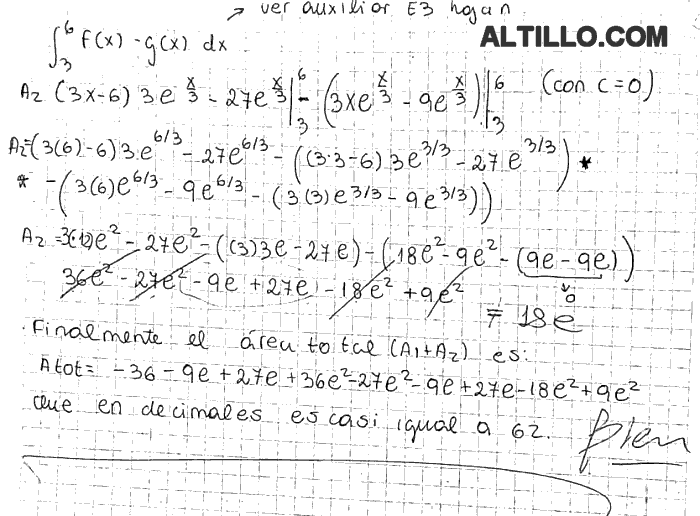 → ver auxiliar E3 hojan
ALTILLO.COM
∫₃⁶ F(x) - g(x) dx
A₂ (3x-6) 3e^{x/3} - 27e^{x/3} |₃⁶ - (3xe^{x/3} - 9e^{x/3}) |₃⁶ (con c=0)
A₂=(3(6)-6)3.e^{6/3} - 27e^{6/3} - ((3·3-6)3e^{3/3} - 27e^{3/3}) *
* -(3(6)e^{6/3} - 9e^{6/3} - (3(3)e^{3/3} - 9e^{3/3}))
A₂ = 3(12)e² - 27e² - ((3)3e - 27e) - (18e² - 9e² - (9e - 9e))
36e² - 27e² - 9e + 27e - 18e² + 9e²
0
= 18e
Finalmente el área total (A₁+A₂) es:
Atot= -36 - 9e + 27e + 36e² - 27e² - 9e + 27e - 18e² + 9e²
Que en decimales es casi igual a 62.
Bien